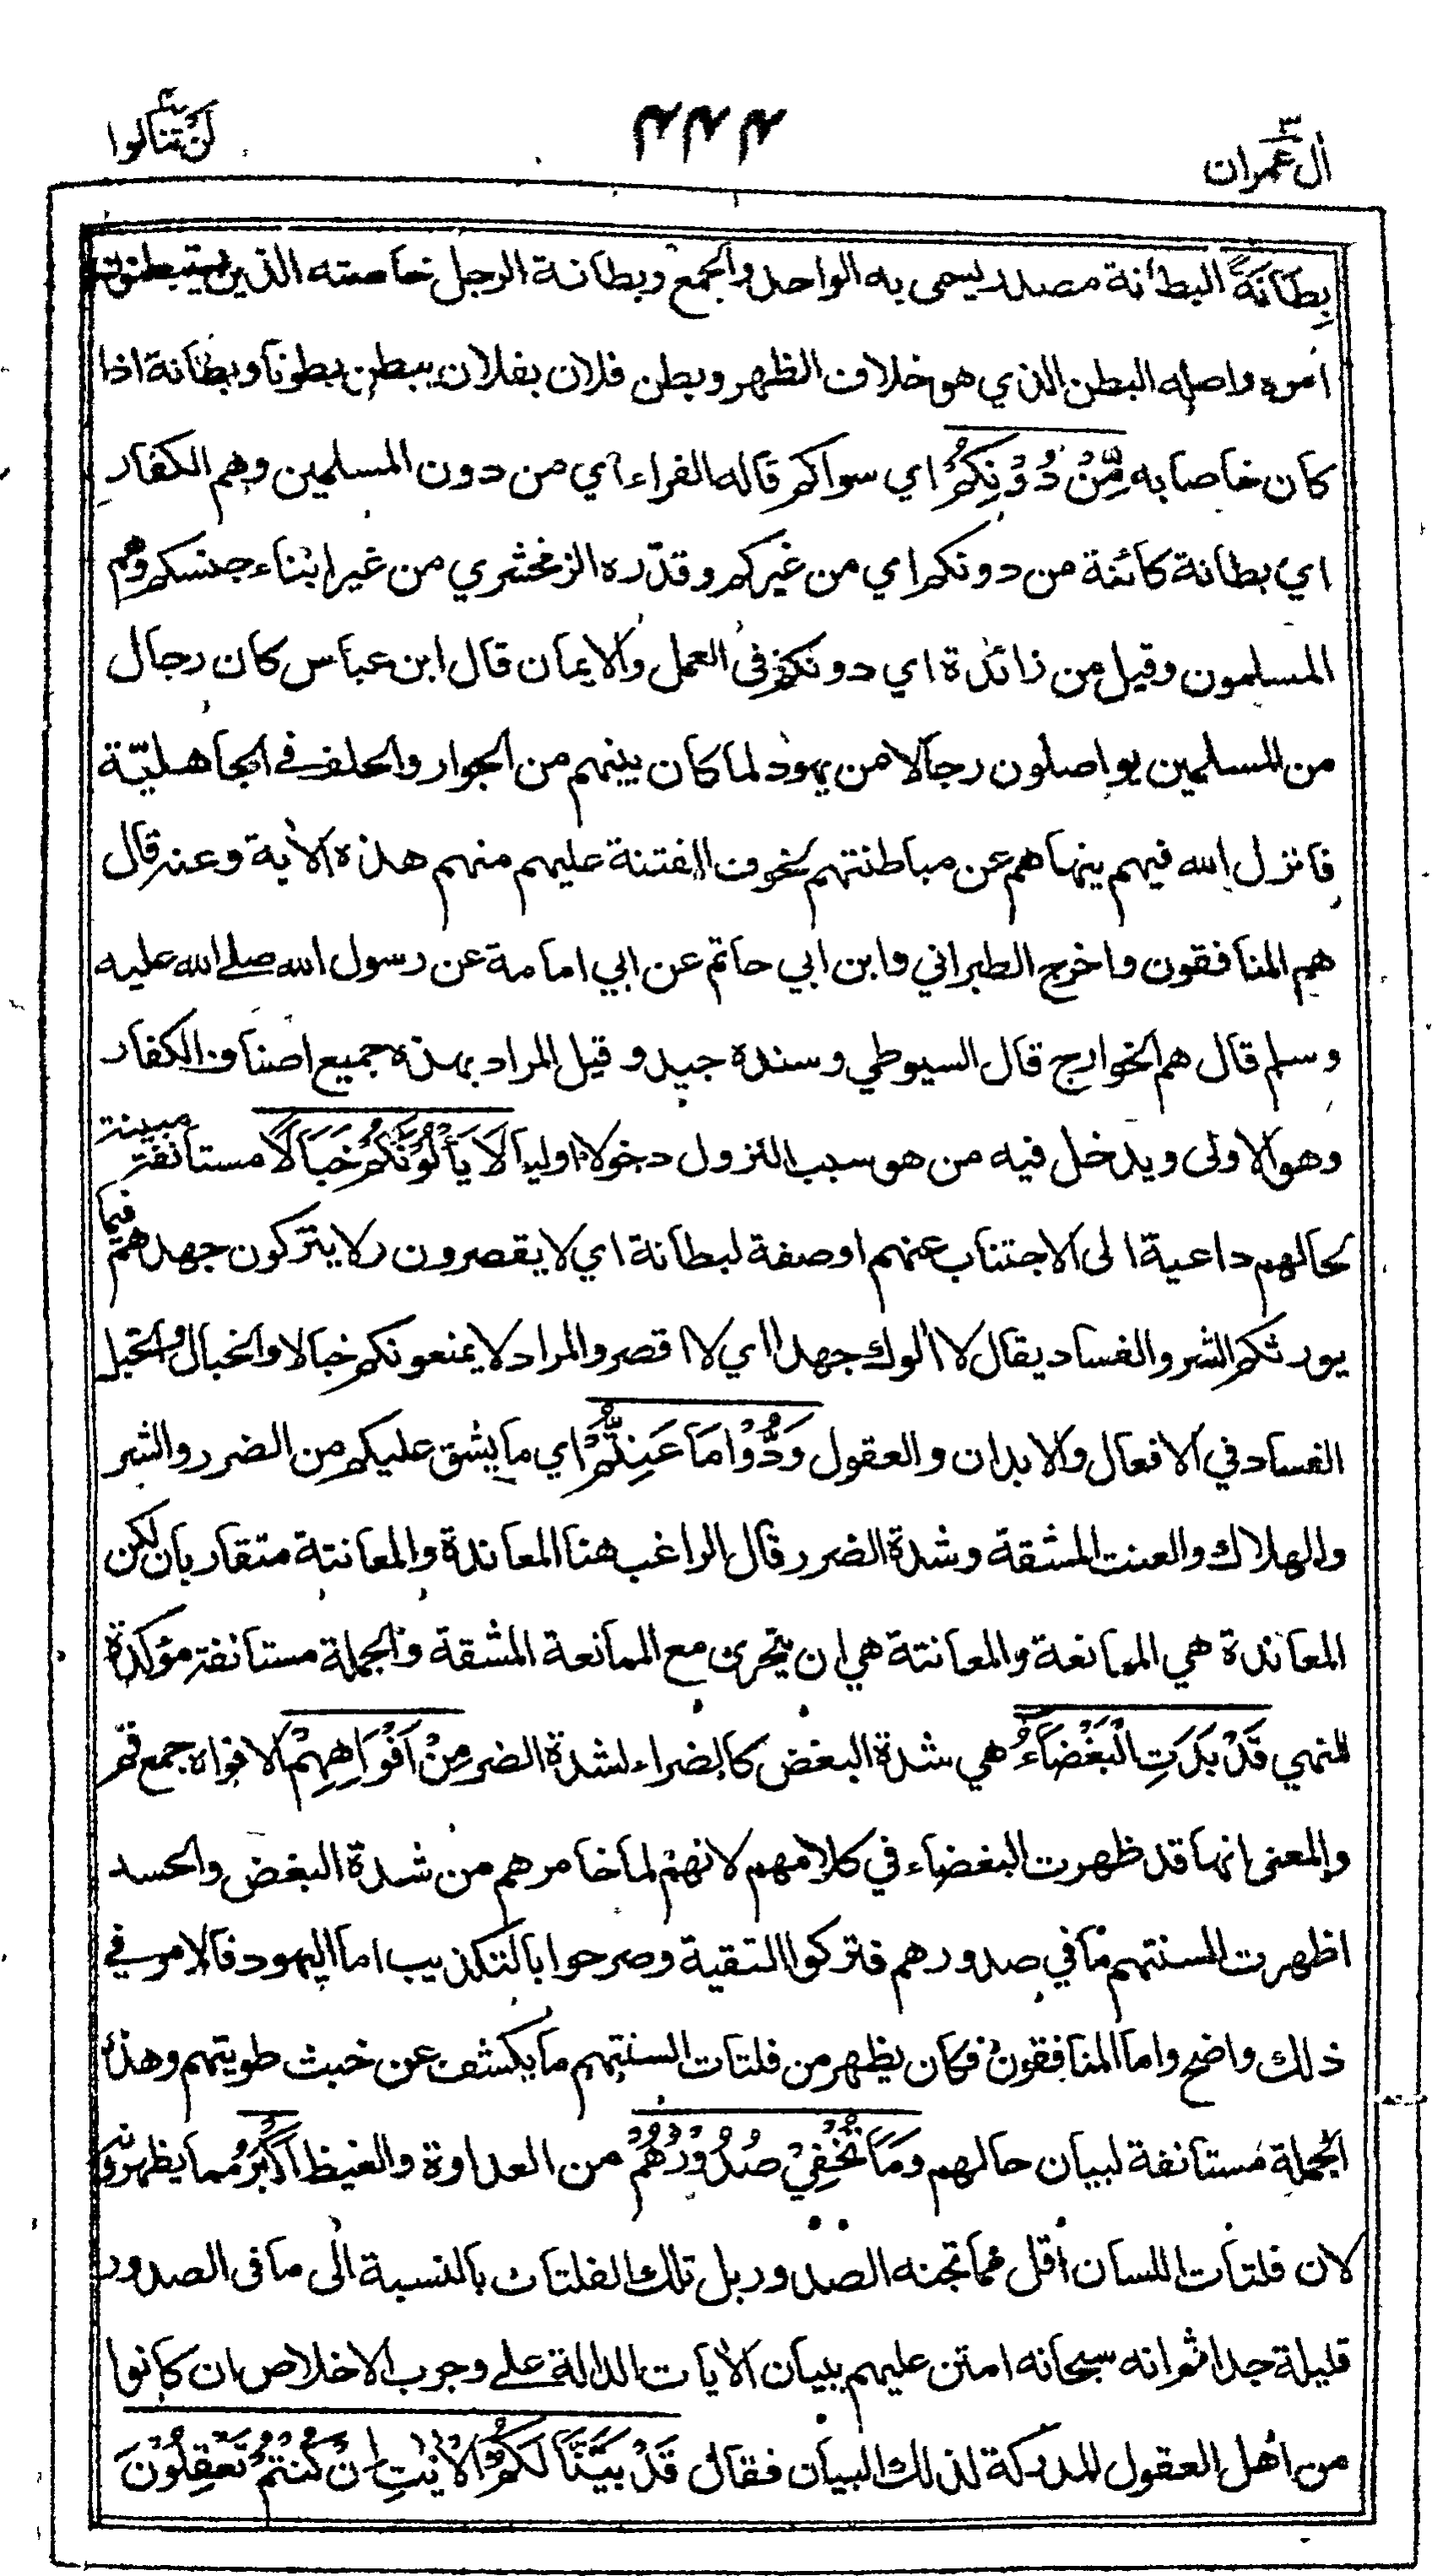 اٰل عمران ٣
٤٤٤
لن تنالوا ٤
بِطَانَةً البطانة مصدر يسمى به الواحد والجمع وبطانة الرجل خاصته الذين يستبطنون
امره واصله البطن الذي هو خلاف الظهر وبطن فلان بفلان يبطن بطونا وبطانة اذا
كان خاصا به مِّنْ دُوْنِكُمْ اي سواكم قاله الفراء اي من دون المسلمين وهم الكفار
اي بطانة كائنة من دونكم اي من غيركم وقدّره الزمخشري من غير ابناء جنسكم وهم
المسلمون وقيل من زائدة اي دونكم في العمل والايمان قال ابن عباس كان رجال
من المسلمين يواصلون رجالا من يهود لما كان بينهم من الجوار والحلف في الجاهليّة
فانزل الله فيهم ينهاهم عن مباطنتهم لخوف الفتنة عليهم منهم هذه الاية وعنه قال
هم المنافقون واخرج الطبراني وابن ابي حاتم عن ابي امامة عن رسول الله صلے الله عليه
وسلم قال هم الخوارج قال السيوطي وسنده جيد وقيل المراد بهذه جميع اصناف الكفار
وهو الاولى ويدخل فيه من هو سبب النزول دخولا اوليا لَا يَأْلُوْنَكُمْ خَبَالًا مستانفة مبينة
لحالهم داعية الى الاجتناب عنهم او صفة لبطانة اي لا يقصرون ولا يتركون جهدهم فيما
يورثكم الشر والفساد يقال لا الوك جهدا اي لا اقصر والمراد لا يمنعونكم خبالا والخبال والخبل
الفساد في الافعال والابدان والعقول وَدُّوْا مَا عَنِتُّمْ اي ما يشق عليكم من الضرر والشر
والهلاك والعنت المشقة وشدة الضرر قال الراغب هنا المعاندة والمعانتة متقاربان لكن
المعاندة هي الممانعة والمعانتة هي ان يتحرى مع الممانعة المشقة والجملة مستانفة مؤكدة
للنهي قَدْ بَدَتِ الْبَغْضَاءُ هي شدة البغض كالضراء لشدة الضر مِنْ اَفْوَاهِهِمْ الافواه جمع فم
والمعنى انها قد ظهرت البغضاء في كلامهم لانهم لما خامرهم من شدة البغض والحسد
اظهرت السنتهم ما في صدورهم فتركوا التقية وصرحوا بالتكذيب اما اليهود فالامر في
ذلك واضح واما المنافقون فكان يظهر من فلتات السنتهم ما يكشف عن خبث طويتهم وهذه
الجملة مستانفة لبيان حالهم وَمَا تُخْفِيْ صُدُوْرُهُمْ من العداوة والغيظ اَكْبَرُ مما يظهرونه
لان فلتات اللسان اقل مما تجنه الصدور بل تلك الفلتات بالنسبة الى ما في الصدور
قليلة جدا ثم انه سبحانه امتن عليهم ببيان الايات الدالة علے وجوب الاخلاص ان كانوا
من اهل العقول المدركة لذلك البيان فقال قَدْ بَيَّنَّا لَكُمُ الْاٰيٰتِ اِنْ كُنْتُمْ تَعْقِلُوْنَ